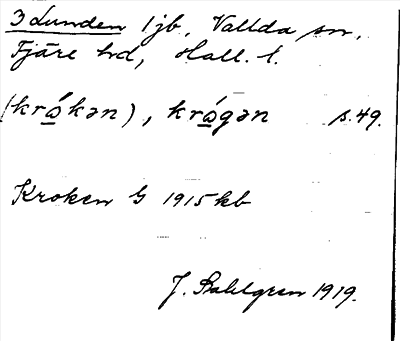 3 Lunden 1 jb, Vallda sn,
Fjäre hd, Hall. l.
(krǻkən), krǻgən s. 49.
Kroken G 1915 kb
J. Sahlgren 1919.